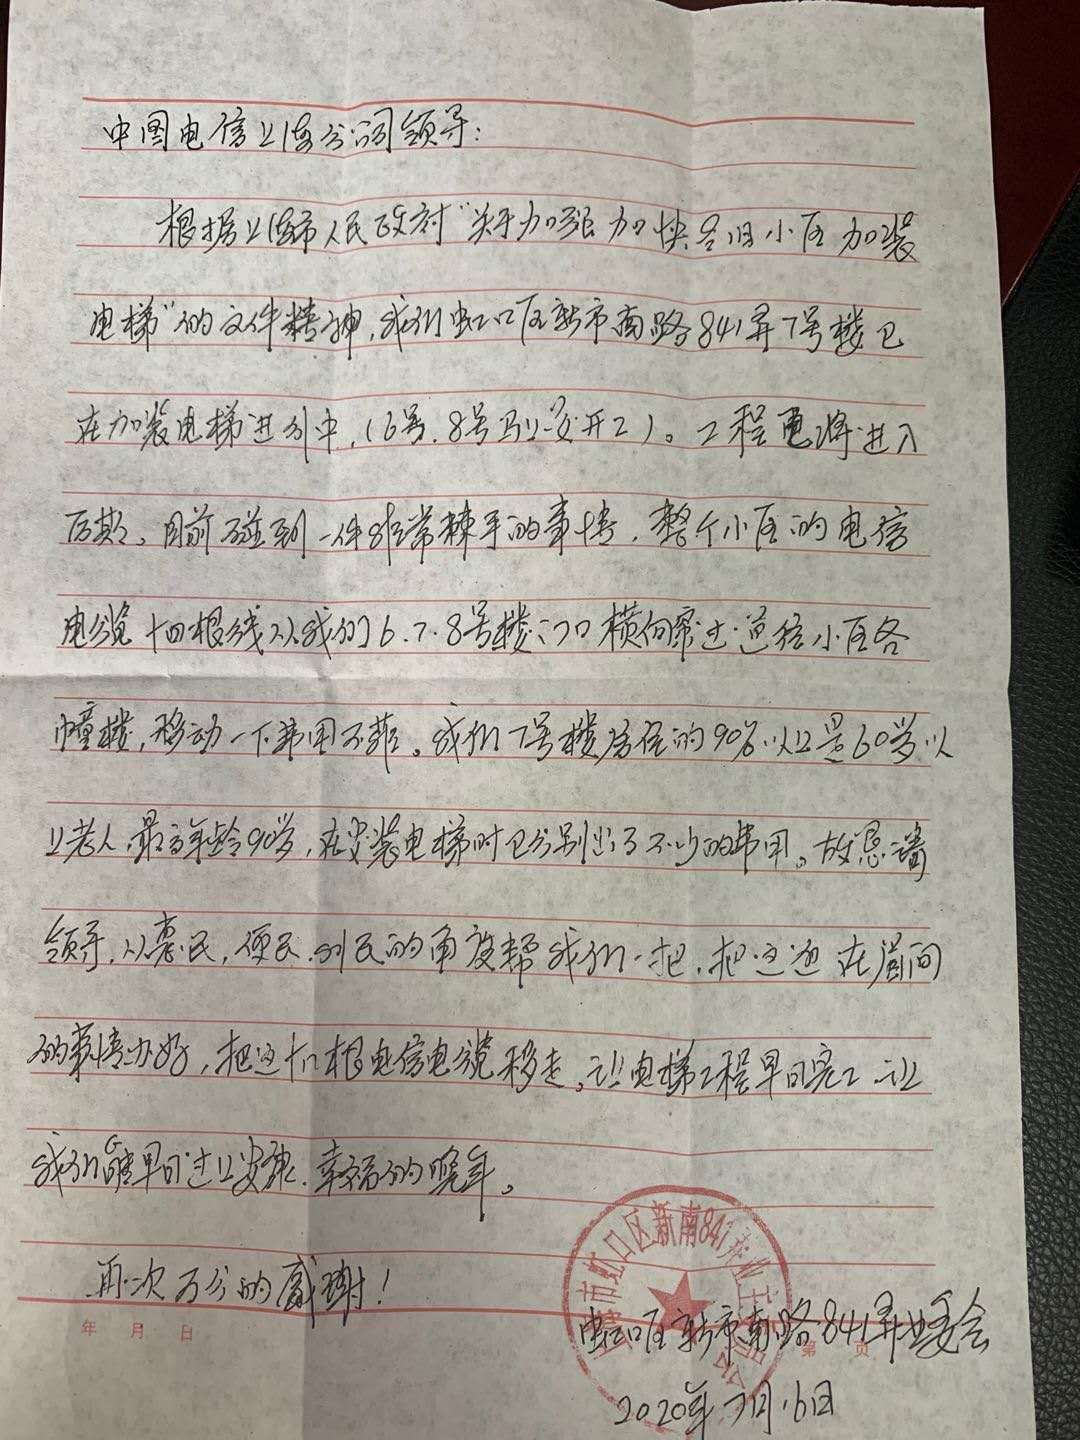 中国电信上海分公司领导：
根据上海市人民政府“关于加强加快各旧小区加装
电梯”的文件精神，我们虹口区新市南路841弄7号楼已
在加装电梯进行中，（6号、8号马上要开工）。工程电梯进入
后期、目前碰到一件非常棘手的事情，整个小区的电信
电缆十四根线从我们6.7.8号楼门口横向穿过通往小区各
幢楼，移动一下费用不菲。我们7号楼居住的90%以上是60岁以
上老人，最高年龄90岁，在安装电梯时已分别出了不少的费用。故恳请
领导，从惠民，便民、利民的角度帮我们一把，把这迫在眉间
的事情办好，把这十四根电信电缆移走，让电梯工程早日完工 让
我们能早日过上安康、幸福的晚年。
再次万分的感谢！
年 月 日
第 页
虹口区新市南路841弄业委会
2020年7月16日